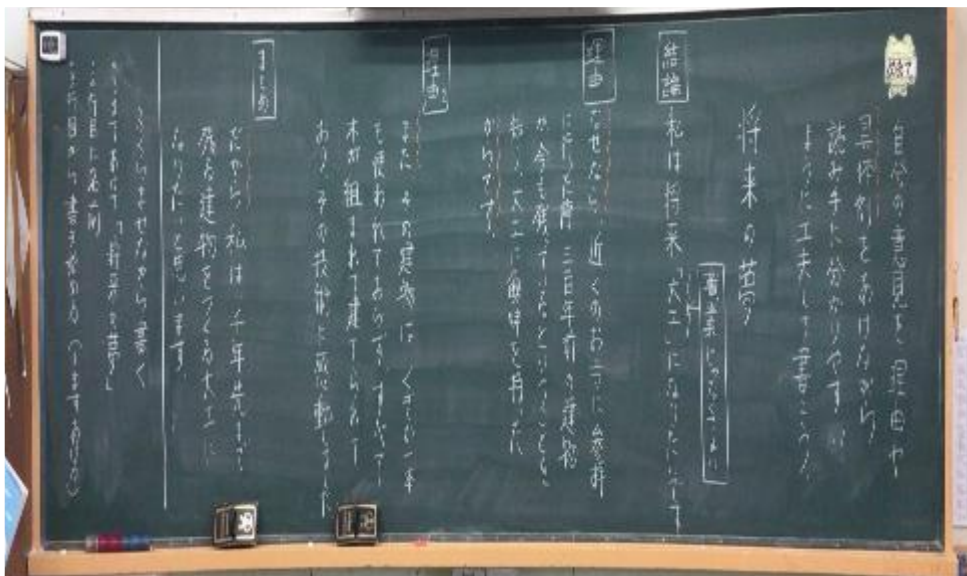 自分の意見を、理由や
具体例をあげながら、
読み手に分かりやすい
ように工夫して書こう！
将来の夢
結論
私は将来「大工」になりたいです
理由
なぜなら、近くのお寺に参拝
三百年前の建物
が今も残っているということを
大工に興味を持った
からです。
理由
また、その建物は、くぎが一本
も使われておらず、すべて
木が組まれて建てられて
おり、その技術に感動した
まとめ
だから、私は、千年先まで
残る建物をつくる大工に
なりたいと思います。
ふくらませながら書く
「将来の夢」
二行目に名前
三行目から書き始める（一ますあける）